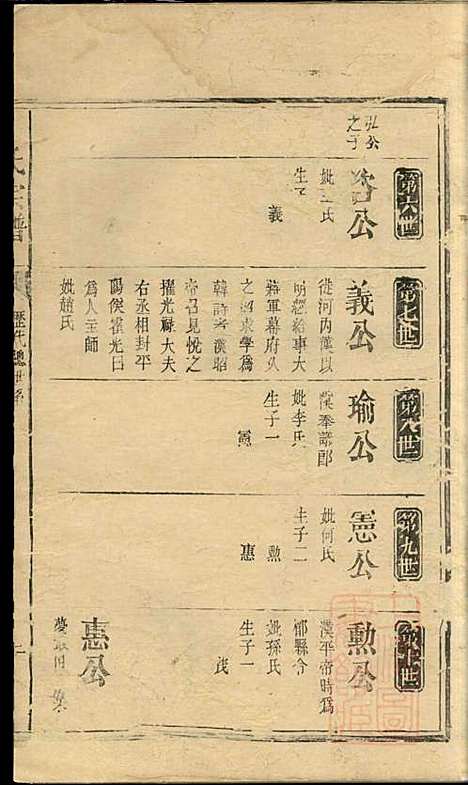 弘公
之子
第六世
公
妣王氏
生子
義
第七世
義公
從河內漢以
明經給事大
將軍幕府久
之詔求學爲
韓詩者漢昭
帝召見悅之
擢光禄大夫
右丞相封平
陽侯霍光曰
爲人主師
妣趙氏
第八世
瑜公
漢奉議郎
妣李氏
生子一
憲
第九世
憲公
妣何氏
生子二
勲
惠
第十世
勲公
漢平帝時爲
鄃縣令
妣孫氏
生子一
茂
惠公
氏宗譜
歷代總世系